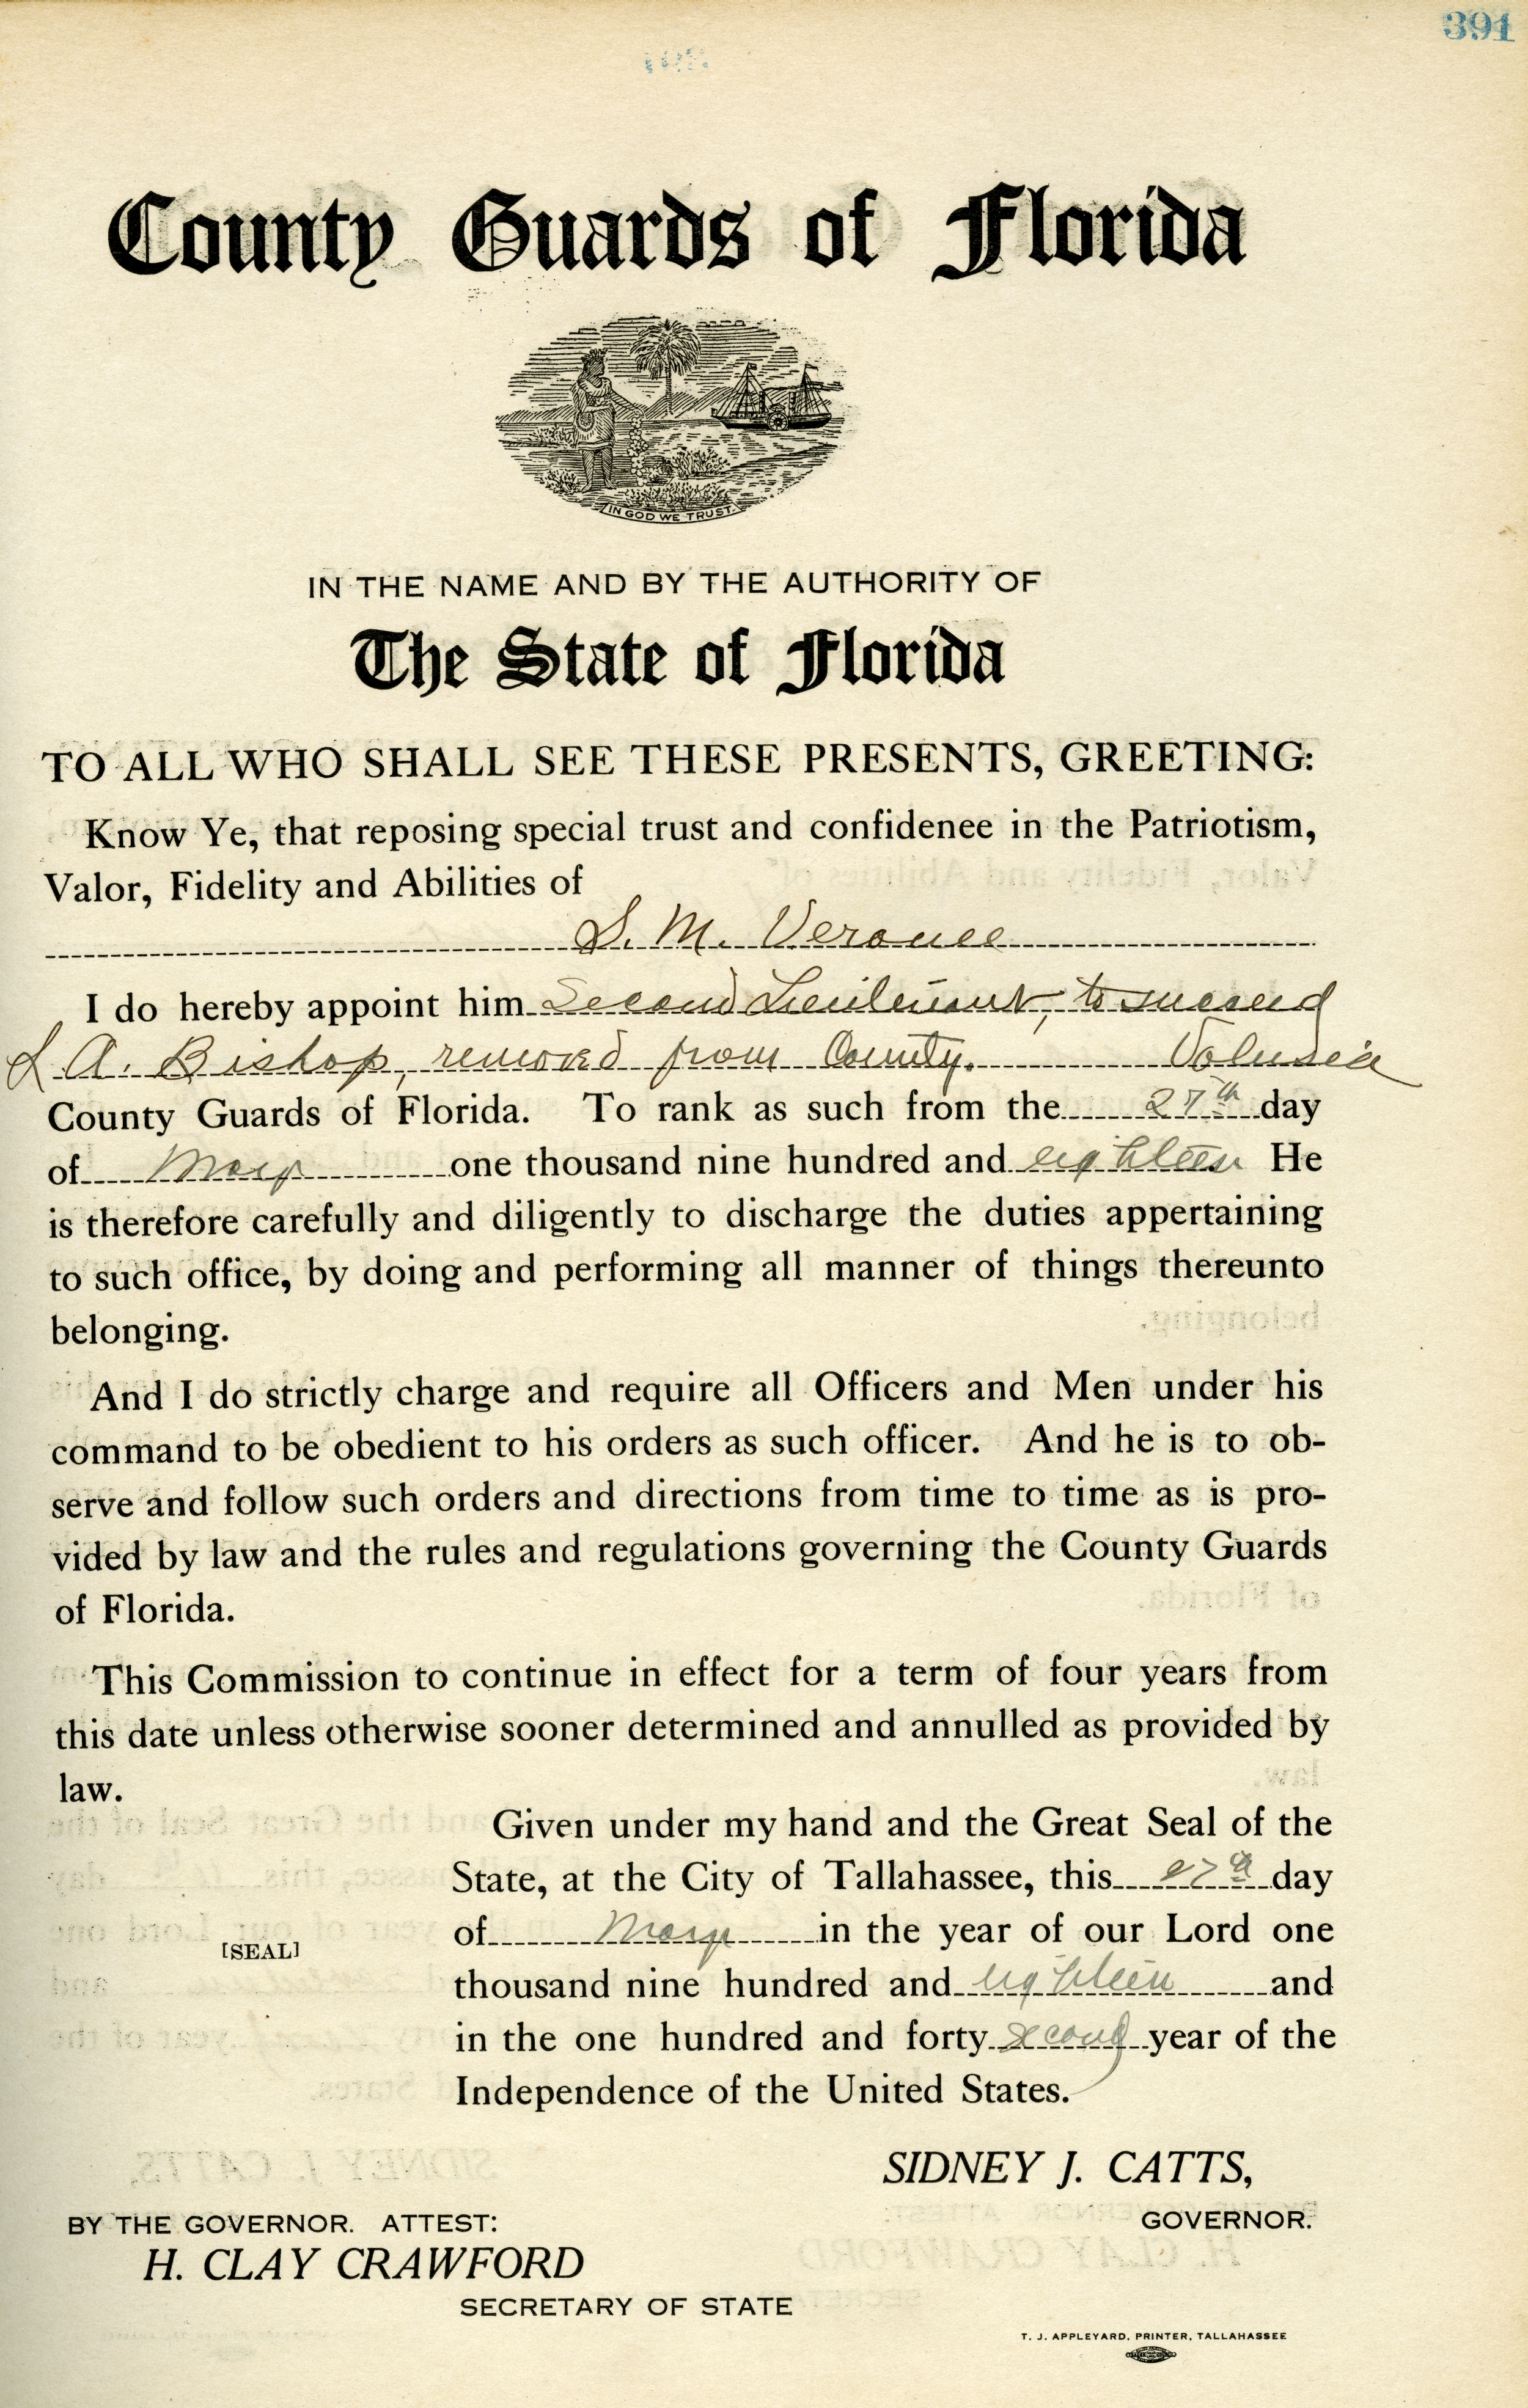 391
County Guards of Florida
IN GOD WE TRUST.
IN THE NAME AND BY THE AUTHORITY OF
The State of Florida
TO ALL WHO SHALL SEE THESE PRESENTS, GREETING:
Know Ye, that reposing special trust and confidenee in the Patriotism,
Valor, Fidelity and Abilities of
S. M. Veronee
I do hereby appoint him Second Lieutenant, to succeed
A. Bishop, removed from County. Volusia
County Guards of Florida. To rank as such from the 27th day
of May one thousand nine hundred and eighteen He
is therefore carefully and diligently to discharge the duties appertaining
to such office, by doing and performing all manner of things thereunto
belonging.
And I do strictly charge and require all Officers and Men under his
command to be obedient to his orders as such officer. And he is to ob-
serve and follow such orders and directions from time to time as is pro-
vided by law and the rules and regulations governing the County Guards
of Florida.
This Commission to continue in effect for a term of four years from
this date unless otherwise sooner determined and annulled as provided by
law.
Given under my hand and the Great Seal of the
State, at the City of Tallahassee, this 27th day
of May in the year of our Lord one
[SEAL]
thousand nine hundred and eighteen and
in the one hundred and forty second year of the
Independence of the United States.
SIDNEY J. CATTS,
GOVERNOR.
BY THE GOVERNOR. ATTEST:
H. CLAY CRAWFORD
SECRETARY OF STATE
T. J. APPLEYARD, PRINTER, TALLAHASSEE